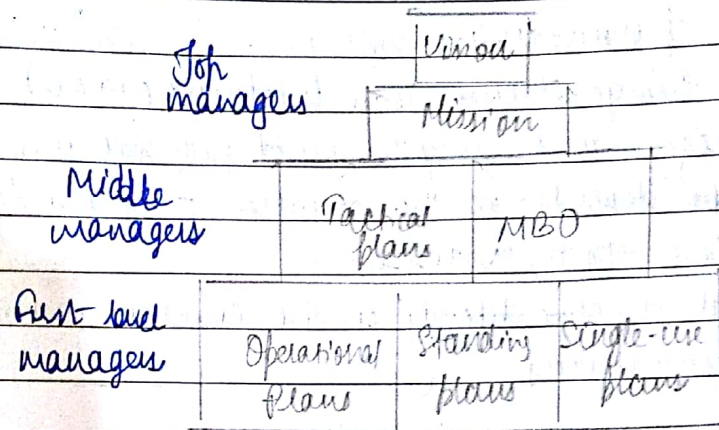 Vision
Top
managers
Mission
Middle
managers
Tactical
plans
MBO
First-level
managers
Operational
Plans
Standing
plans
Single-use
plans